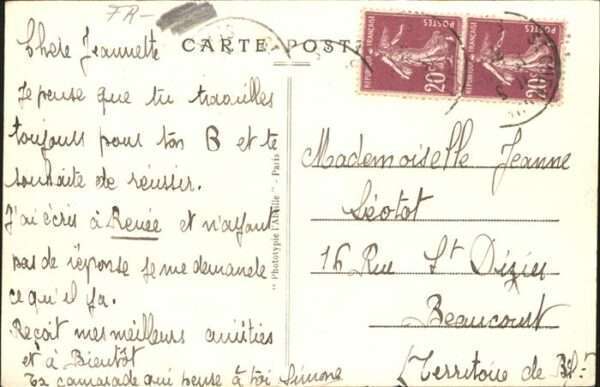 FR-
CARTE POST
POSTES
RÉPUBLIQUE FRANÇAISE
20c
POSTES
RÉPUBLIQUE FRANÇAISE
20c
Chere Jeannette
Je pense que tu travailles
toujours pour ton B et te
souhaite de réussir.
J'ai écris à Renée et n'alfant
pas de réponse je me demande
ce qu'il ya.
Reçoit mes meilleurs amitiés
et à Bientôt
Ta camarade qui pense à toi Simone
" Phototypie l'Abeille " - Paris
Mademoiselle Jeanne
16 Rue St Dizier
Beaucourt
(Territoire de